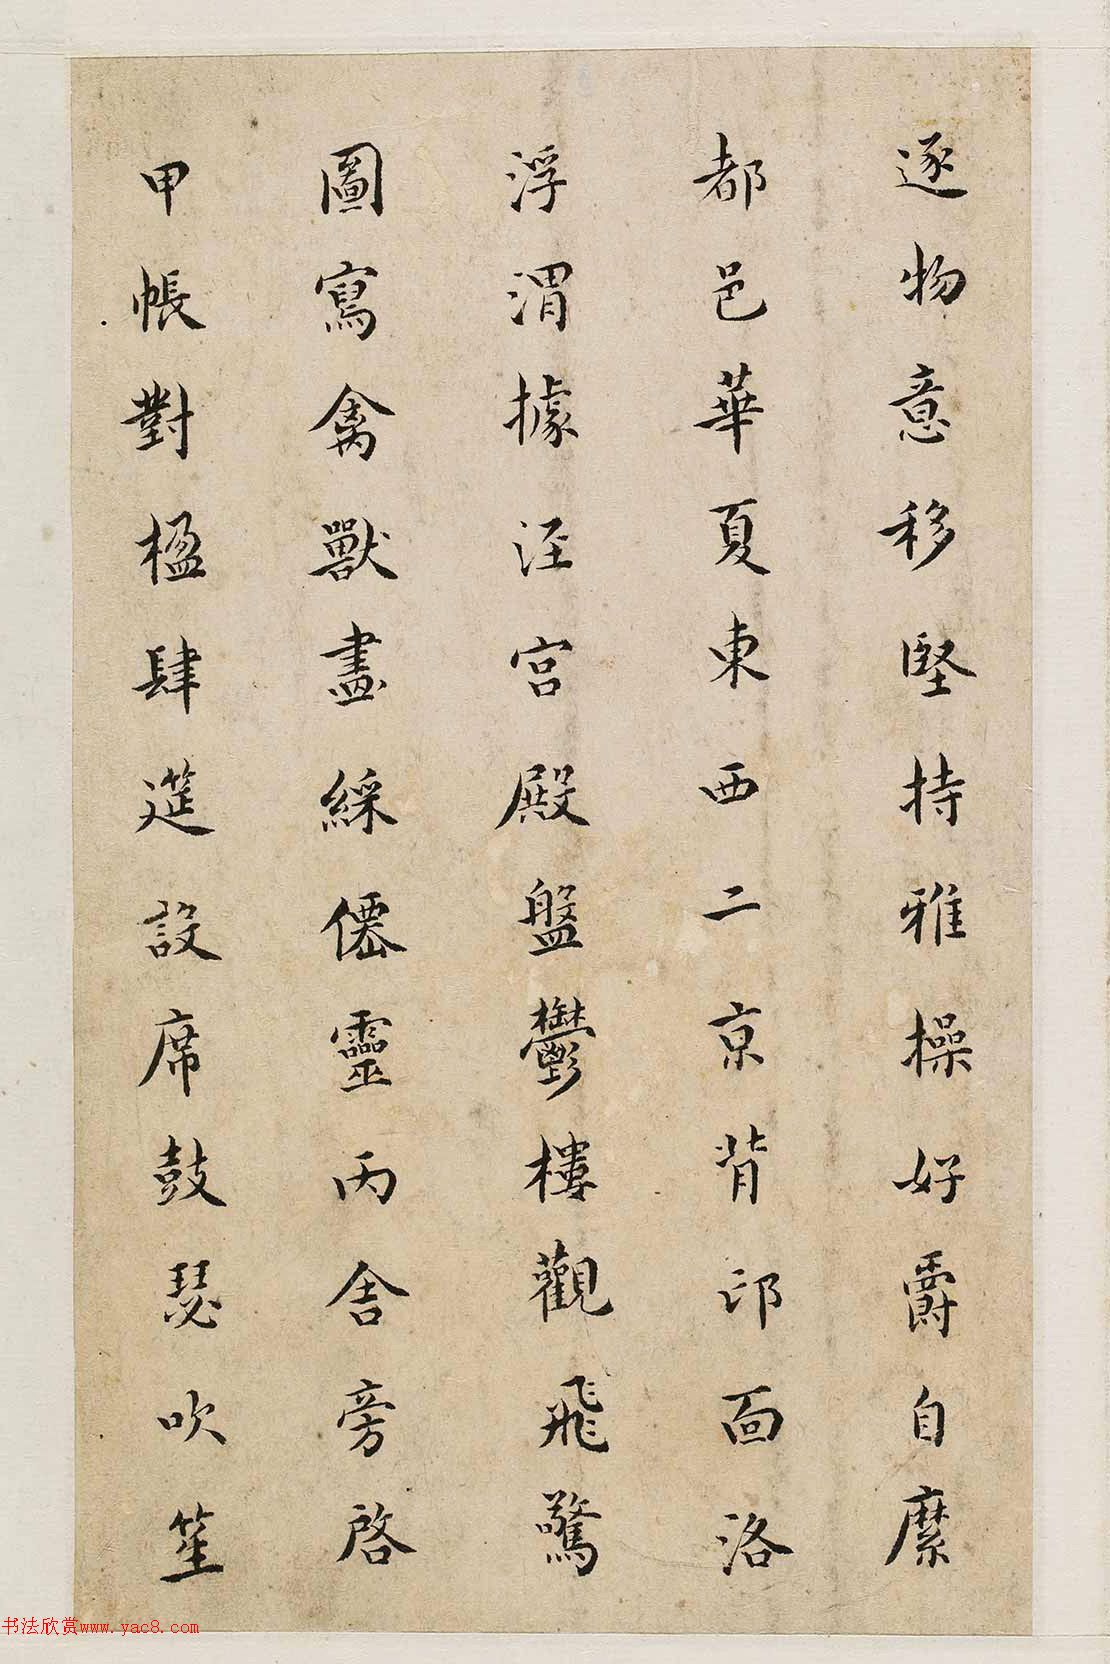 逐物意移堅持雅操好爵自縻
都邑華夏東西二京背邙面洛
浮渭據涇宮殿盤鬱樓觀飛驚
圖寫禽獸畫綵僊靈丙舍旁啓
甲帳對楹肆筵設席鼓瑟吹笙
书法欣赏www.yac8.com